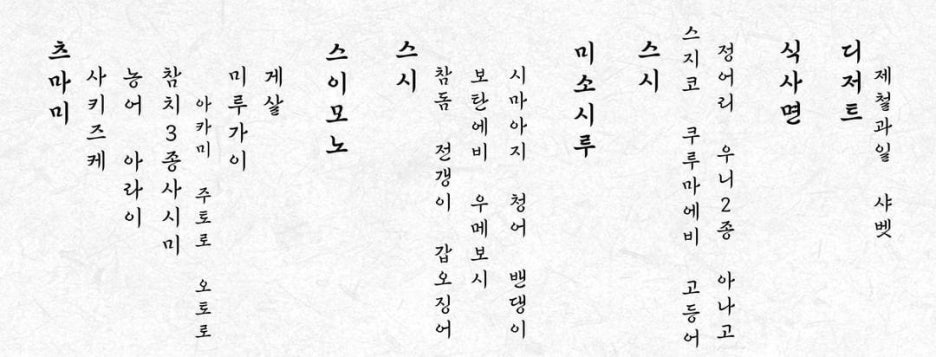 츠마미
사키즈케
농어 아라이
참치3종사시미
아카미 주토로 오토로
미루가이
게살
스이모노
스시
참돔 전갱이 갑오징어
보탄에비 우메보시
시마아지 청어 밴댕이
미소시루
스시
스지코 쿠루마에비 고등어
정어리 우니2종 아나고
식사면
디저트
제철과일 샤벳